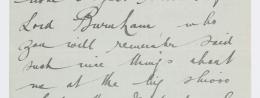 Lord Burnham who
you will remember said
such nice things about
me at the big show